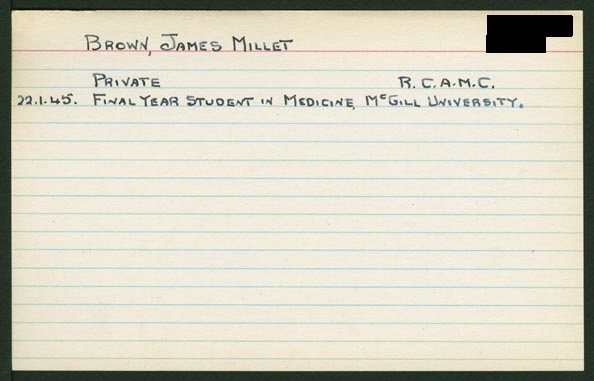 BROWN, JAMES MILLET
PRIVATE R.C.A.M.C.
22.1.45. FINAL YEAR STUDENT IN MEDICINE, McGILL UNIVERSITY.